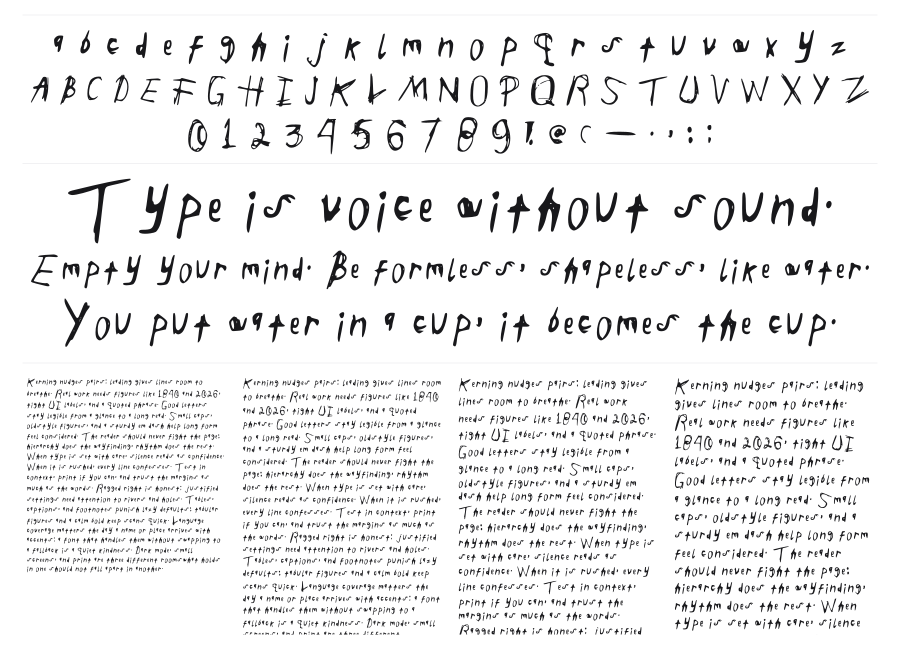 a b c d e f g h i j k l m n o p q r s t u v w x y z
A B C D E F G H I J K L M N O P Q R S T U V W X Y Z
0 1 2 3 4 5 6 7 8 9 ! @ ( — . , ; :
Type is voice without sound.
Empty your mind. Be formless, shapeless, like water.
You put water in a cup, it becomes the cup.
Kerning nudges pairs; leading gives lines room to
breathe. Real work needs figures like 1840 and 2026,
tight UI labels, and a quoted phrase. Good letters
stay legible from a glance to a long read. Small caps,
oldstyle figures, and a sturdy em dash help long form
feel considered. The reader should never fight the page;
hierarchy does the wayfinding, rhythm does the rest.
When type is set with care, silence reads as confidence.
When it is rushed, every line confesses. Test in
context, print if you can, and trust the margins as
much as the words. Ragged right is honest; justified
settings need attention to rivers and holes. Tables,
captions, and footnotes punish lazy defaults; tabular
figures and a calm bold keep scans quick. Language
coverage matters the day a name or place arrives with
accents; a font that handles them without swapping to
a fallback is a quiet kindness. Dark mode, small
screens, and print are three different rooms; what holds
in one should not fall apart in another.
Kerning nudges pairs; leading gives lines room
to breathe. Real work needs figures like 1840
and 2026, tight UI labels, and a quoted
phrase. Good letters stay legible from a glance
to a long read. Small caps, oldstyle figures,
and a sturdy em dash help long form feel
considered. The reader should never fight the
page; hierarchy does the wayfinding, rhythm
does the rest. When type is set with care,
silence reads as confidence. When it is rushed,
every line confesses. Test in context, print
if you can, and trust the margins as much as
the words. Ragged right is honest; justified
settings need attention to rivers and holes.
Tables, captions, and footnotes punish lazy
defaults; tabular figures and a calm bold keep
scans quick. Language coverage matters the
day a name or place arrives with accents; a font
that handles them without swapping to a
fallback is a quiet kindness. Dark mode, small
screens, and print are three different
Kerning nudges pairs; leading gives
lines room to breathe. Real work
needs figures like 1840 and 2026,
tight UI labels, and a quoted phrase.
Good letters stay legible from a
glance to a long read. Small caps,
oldstyle figures, and a sturdy em
dash help long form feel considered.
The reader should never fight the
page; hierarchy does the wayfinding,
rhythm does the rest. When type is
set with care, silence reads as
confidence. When it is rushed, every
line confesses. Test in context,
print if you can, and trust the
margins as much as the words.
Ragged right is honest; justified
Kerning nudges pairs; leading
gives lines room to breathe.
Real work needs figures like
1840 and 2026, tight UI
labels, and a quoted phrase.
Good letters stay legible from
a glance to a long read. Small
caps, oldstyle figures, and a
sturdy em dash help long form
feel considered. The reader
should never fight the page;
hierarchy does the wayfinding,
rhythm does the rest. When
type is set with care, silence